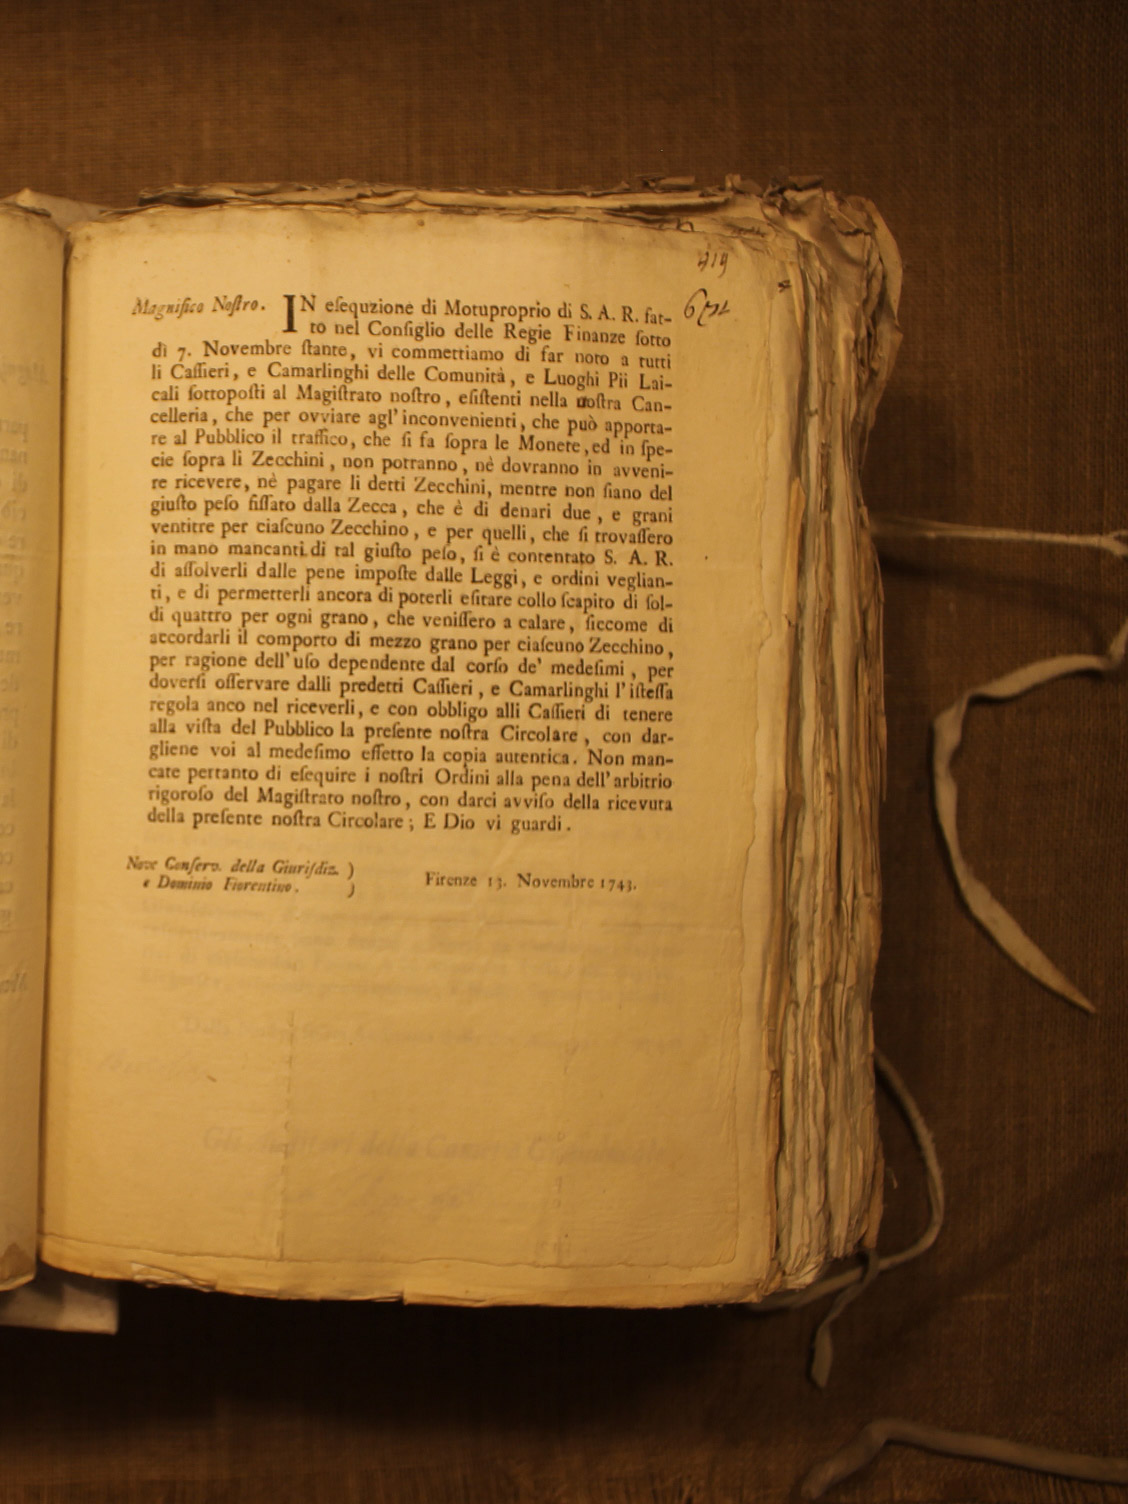 419
Magnifico Noſtro. IN eſequzione di Motuproprio di S. A. R. fat-
to nel Conſiglio delle Regie Finanze ſotto
dì 7. Novembre ſtante, vi commettiamo di far noto a tutti
li Caſſieri, e Camarlinghi delle Comunità, e Luoghi Pii Lai-
cali ſottopoſti al Magiſtrato noſtro, eſiſtenti nella noſtra Can-
celleria, che per ovviare agl'inconvenienti, che può apporta-
re al Pubblico il traffico, che ſi fa ſopra le Monete, ed in ſpe-
cie ſopra li Zecchini, non potranno, nè dovranno in avveni-
re ricevere, nè pagare li detti Zecchini, mentre non ſiano del
giuſto peſo fiſſato dalla Zecca, che è di denari due, e grani
ventitre per ciaſcuno Zecchino, e per quelli, che ſi trovaſſero
in mano mancanti di tal giuſto peſo, ſi è contentato S. A. R.
di aſſolverli dalle pene impoſte dalle Leggi, e ordini veglian-
ti, e di permetterli ancora di poterli eſitare collo ſcapito di ſol-
di quattro per ogni grano, che veniſſero a calare, ſiccome di
accordarli il comporto di mezzo grano per ciaſcuno Zecchino,
per ragione dell'uſo dependente dal corſo de' medeſimi, per
doverſi oſſervare dalli predetti Caſſieri, e Camarlinghi l'iſteſſa
regola anco nel riceverli, e con obbligo alli Caſſieri di tenere
alla viſta del Pubblico la preſente noſtra Circolare, con dar-
gliene voi al medeſimo effetto la copia autentica. Non man-
cate pertanto di eſequire i noſtri Ordini alla pena dell'arbitrio
rigoroſo del Magiſtrato noſtro, con darci avviſo della ricevuta
della preſente noſtra Circolare; E Dio vi guardi.
Nove Conſerv. della Giuriſdiz. )
e Dominio Fiorentino. )
Firenze 13. Novembre 1743.